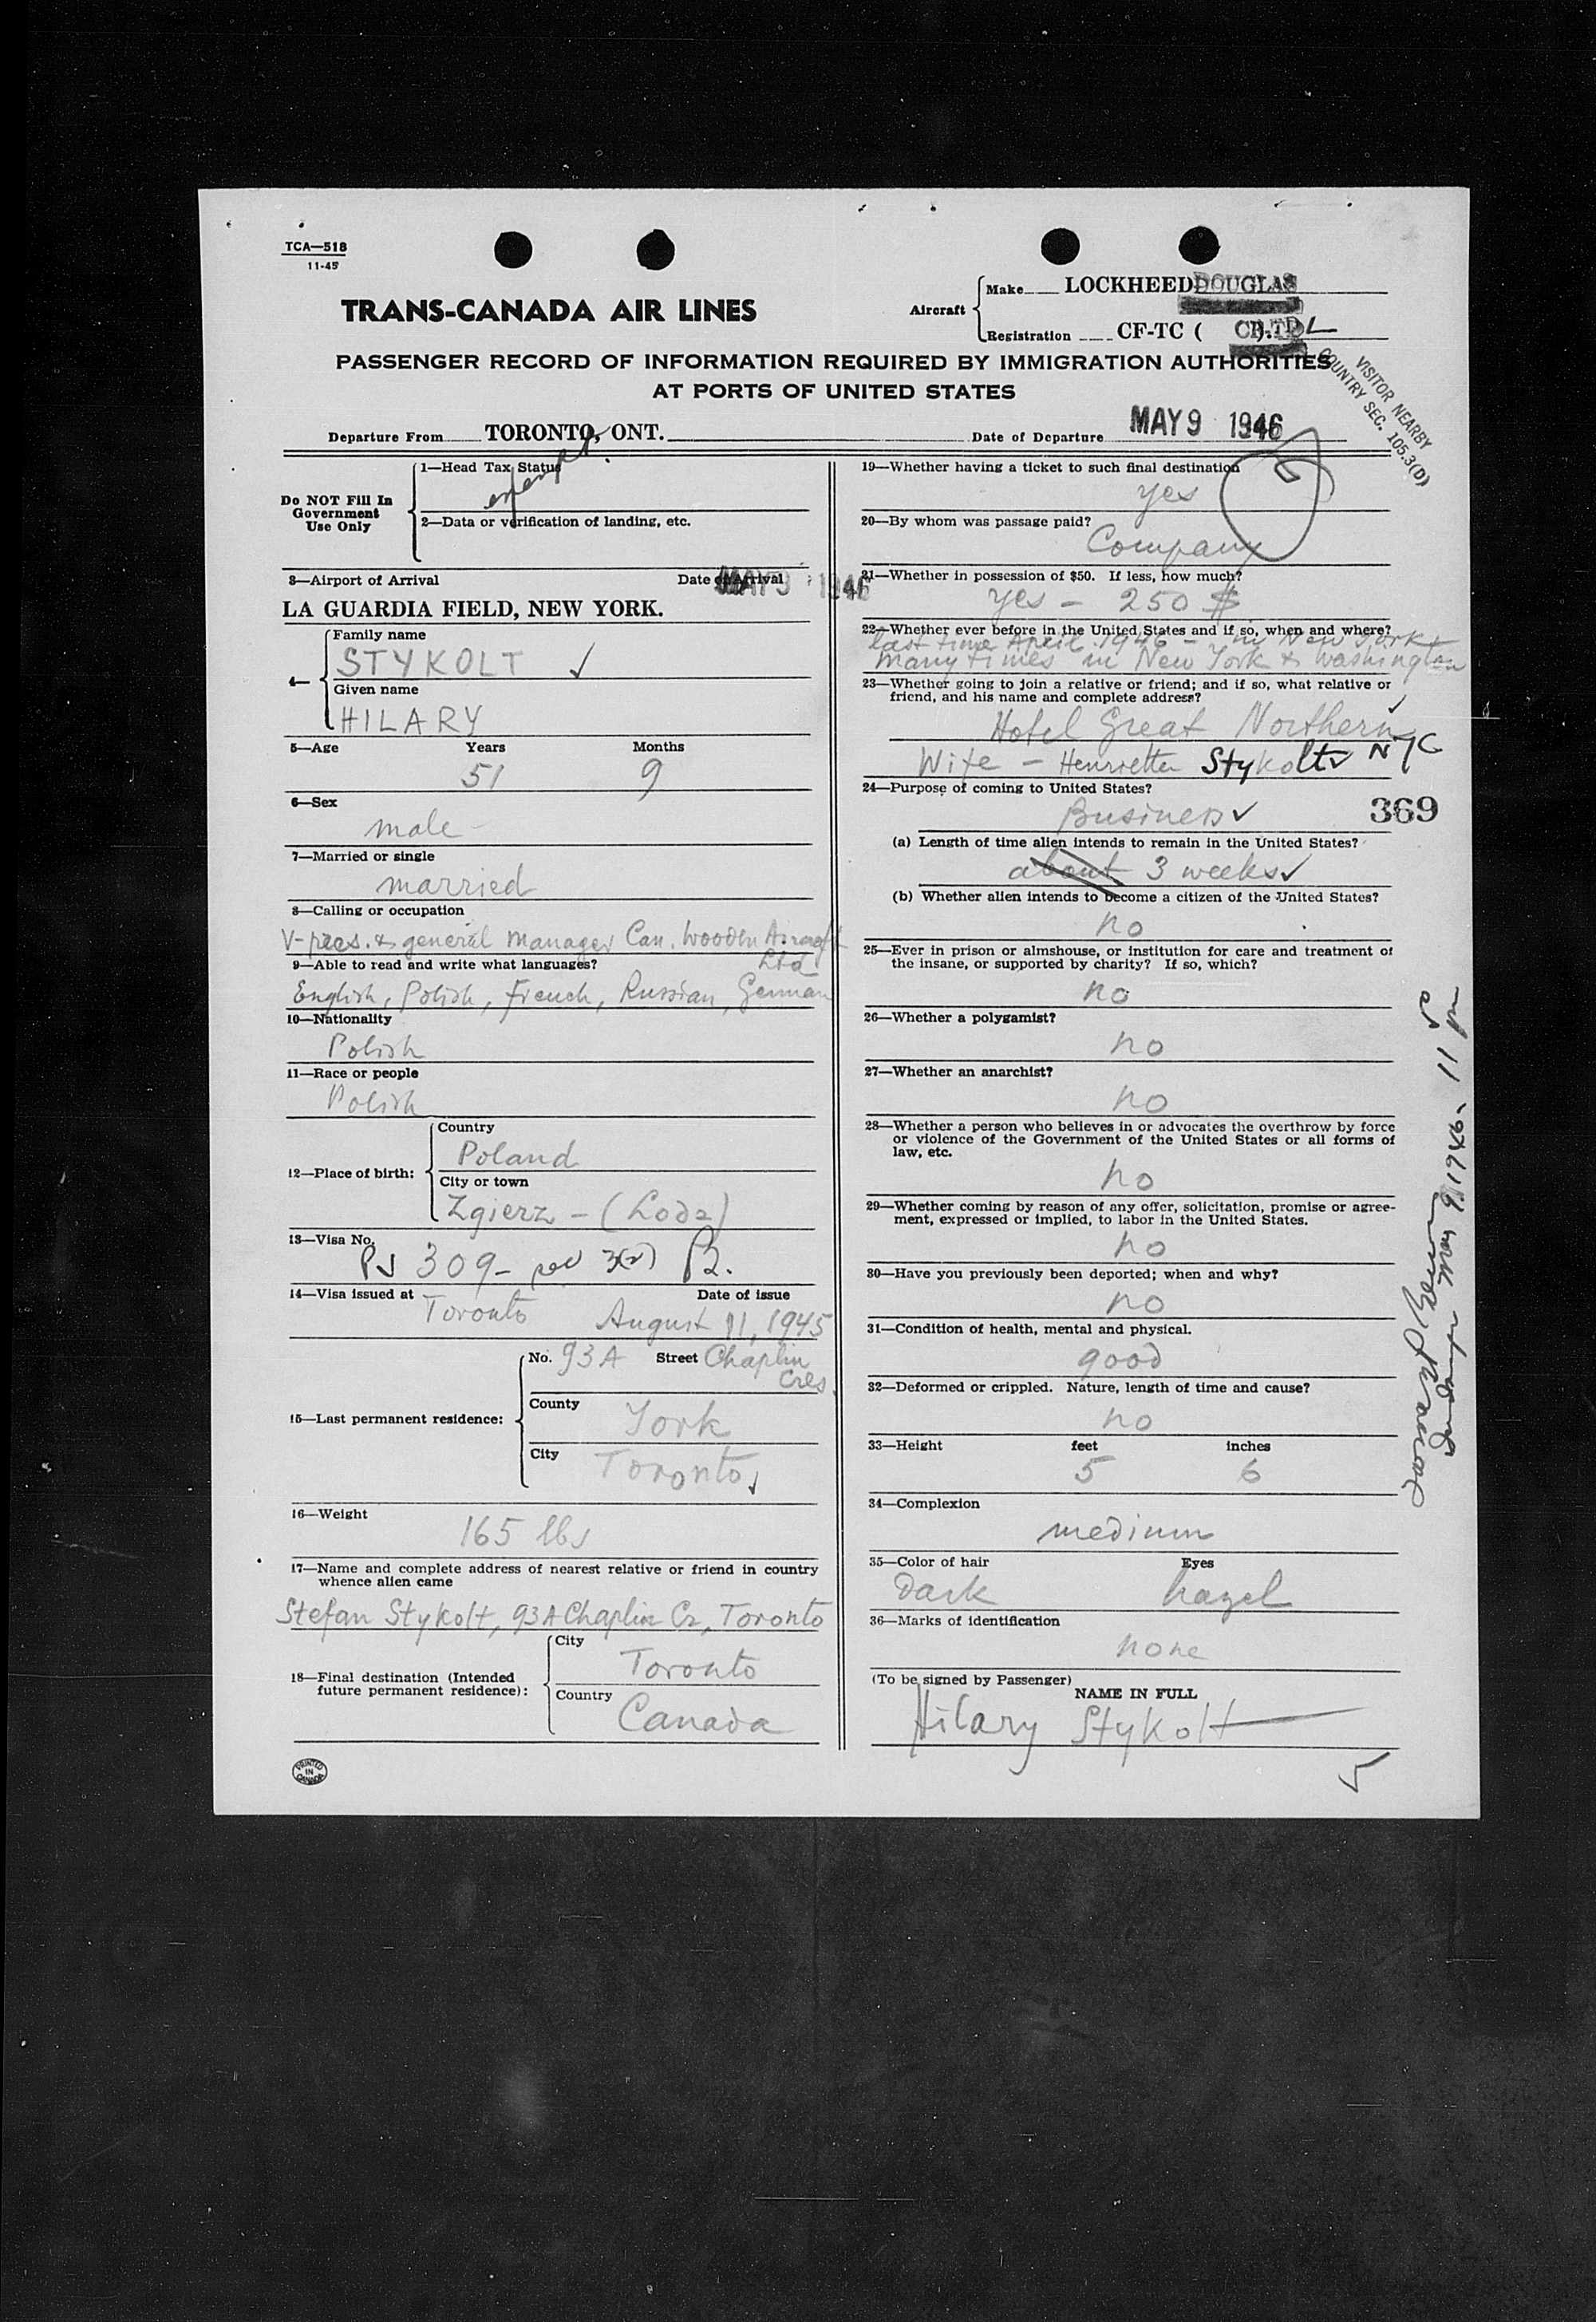 TCA—518
11-45
TRANS-CANADA AIR LINES
Aircraft
Make LOCKHEED DOUGLAS
Registration CF-TC (
PASSENGER RECORD OF INFORMATION REQUIRED BY IMMIGRATION AUTHORITIES
AT PORTS OF UNITED STATES
VISITOR NEARBY
COUNTRY SEC. 105.3(D)
Departure From TORONTO, ONT. Date of Departure MAY 9 1946
Do NOT Fill In
Government
Use Only
1—Head Tax Status
exempt.
2—Data or verification of landing, etc.
3—Airport of Arrival Date of Arrival MAY 9 1946
LA GUARDIA FIELD, NEW YORK.
4—
Family name
STYKOLT ✓
Given name
HILARY
5—Age Years Months
51 9
6—Sex
male
7—Married or single
married
8—Calling or occupation
V-pres. & general manager Can. Wooden Aircraft
Ltd
9—Able to read and write what languages?
English, Polish, French, Russian, German
10—Nationality
Polish
11—Race or people
Polish
12—Place of birth:
Country
Poland
City or town
Zgierz – (Lodz)
13—Visa No.
PV 309- 3(2) B.
14—Visa issued at Toronto Date of issue
August 11, 1945
15—Last permanent residence:
No. 93A Street Chaplin
Cres.
County
York
City
Toronto ✓
16—Weight
165 lbs
17—Name and complete address of nearest relative or friend in country
whence alien came
Stefan Stykolt, 93A Chaplin Cr, Toronto
18—Final destination (Intended
future permanent residence):
City
Toronto
Country
Canada
PRINTED
IN
CANADA
19—Whether having a ticket to such final destination
yes
20—By whom was passage paid?
Company
21—Whether in possession of $50. If less, how much?
yes – 250 $
22—Whether ever before in the United States and if so, when and where?
last time April 1946 – in New York &
many times in New York & Washington
23—Whether going to join a relative or friend; and if so, what relative or
friend, and his name and complete address?
Hotel Great Northern
Wife – Henrietta Stykolt ✓ NYC
24—Purpose of coming to United States?
Business ✓
369
(a) Length of time alien intends to remain in the United States?
about 3 weeks ✓
(b) Whether alien intends to become a citizen of the United States?
no
25—Ever in prison or almshouse, or institution for care and treatment of
the insane, or supported by charity? If so, which?
no
26—Whether a polygamist?
no
27—Whether an anarchist?
no
28—Whether a person who believes in or advocates the overthrow by force
or violence of the Government of the United States or all forms of
law, etc.
no
29—Whether coming by reason of any offer, solicitation, promise or agree-
ment, expressed or implied, to labor in the United States.
no
30—Have you previously been deported; when and why?
no
31—Condition of health, mental and physical.
good
32—Deformed or crippled. Nature, length of time and cause?
no
33—Height feet inches
5 6
34—Complexion
medium
35—Color of hair Eyes
Dark hazel
36—Marks of identification
none
(To be signed by Passenger)
NAME IN FULL
Hilary Stykolt
May 9, 1946